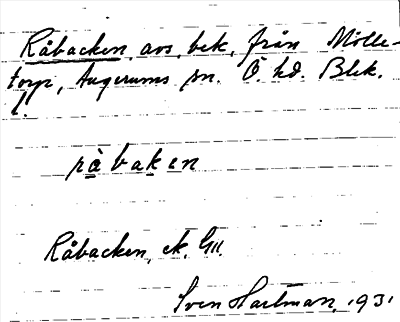 Råbacken, avs. bek. från Mölle-
torp, Augerums sn. Ö. hd. Blek.
l.
råbaken
Råbacken, ek. GII.
Sven Hartman, 1931